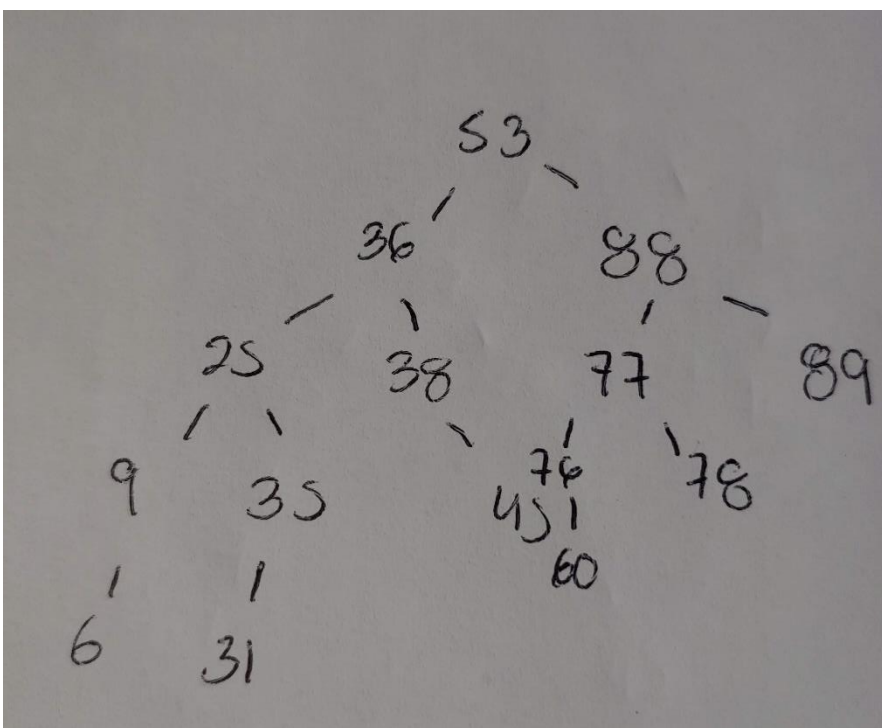 53
36 88
25 38 77 89
9 35 76 78
45
60
6 31